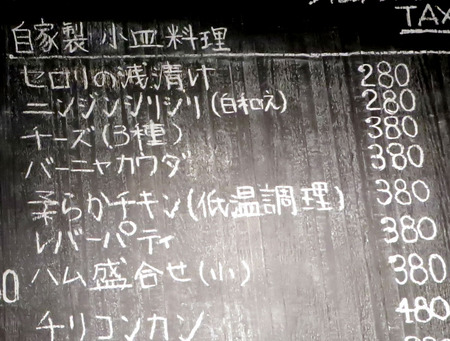 TAX
自家製 小皿料理
セロリの浅漬け 280
ニンジンシリシリ(白和え) 280
チーズ(3種) 380
バーニャカウダ 380
柔らかチキン(低温調理) 380
レバーパティ 380
ハム盛合せ(小) 380
チリコンカン 480